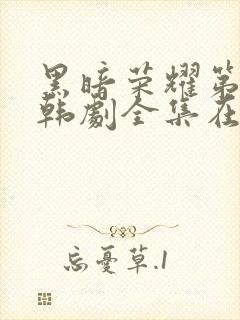 黑暗荣耀第
韩劇全集在
忘憂草.1